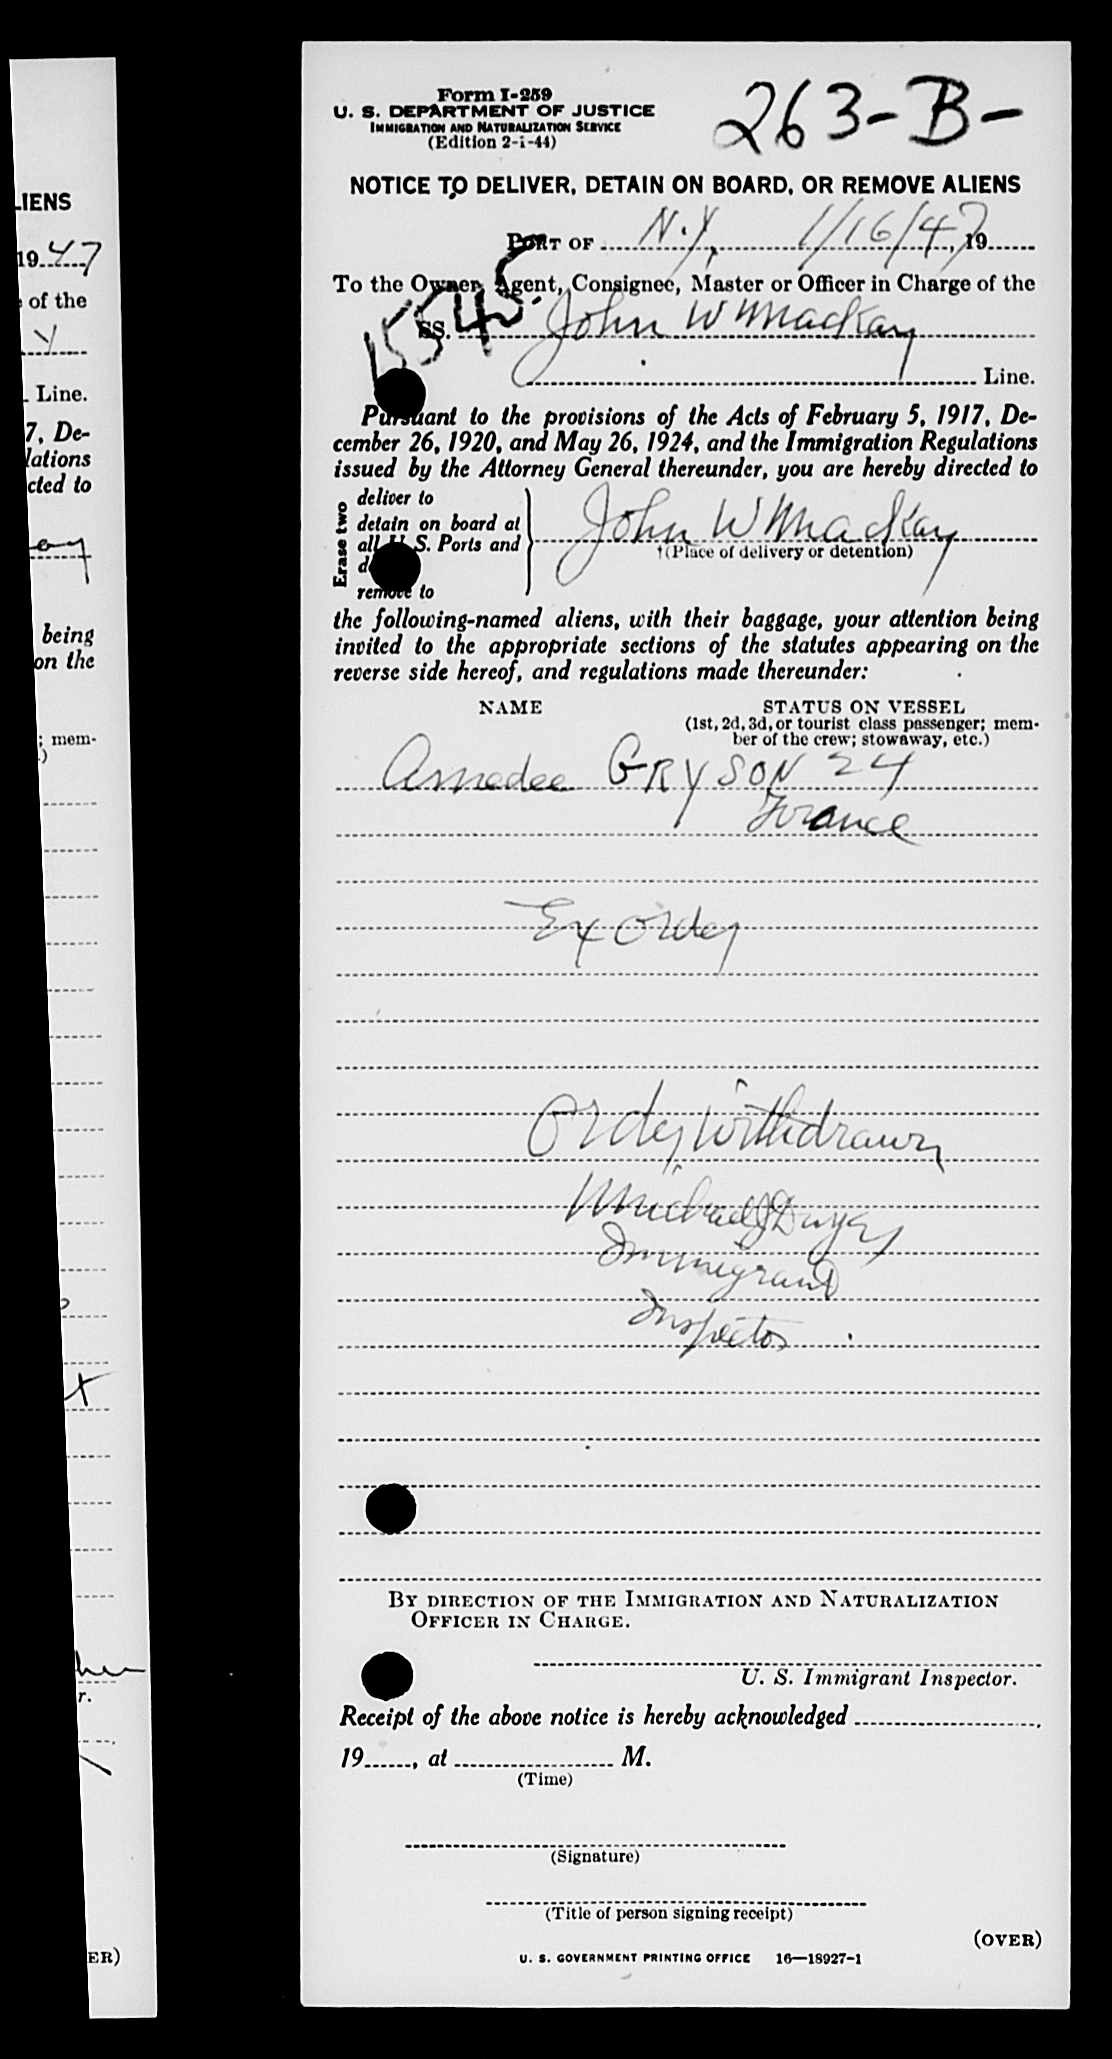 LIENS
19 47
of the
y
Line.
7, De-
lations
cted to
ay
being
on the
; mem-
.)
r.
ER)
Form I-259
U. S. DEPARTMENT OF JUSTICE
IMMIGRATION AND NATURALIZATION SERVICE
(Edition 2-1-44)
263-B-
NOTICE TO DELIVER, DETAIN ON BOARD, OR REMOVE ALIENS
PORT OF N.Y, 1/16/47, 19
To the Owner, Agent, Consignee, Master or Officer in Charge of the
15545
SS. John W Mackay
Line.
Pursuant to the provisions of the Acts of February 5, 1917, De-
cember 26, 1920, and May 26, 1924, and the Immigration Regulations
issued by the Attorney General thereunder, you are hereby directed to
Erase two
deliver to
detain on board at
all U. S. Ports and
remove to
John W Mackay
†(Place of delivery or detention)
the following-named aliens, with their baggage, your attention being
invited to the appropriate sections of the statutes appearing on the
reverse side hereof, and regulations made thereunder:
NAME STATUS ON VESSEL
(1st, 2d, 3d, or tourist class passenger; mem-
ber of the crew; stowaway, etc.)
Amedee GRYSON 24
France
Ex Order
Order Withdrawn
Michael J Dwyer
Immigrant
Inspector
BY DIRECTION OF THE IMMIGRATION AND NATURALIZATION
OFFICER IN CHARGE.
U. S. Immigrant Inspector.
Receipt of the above notice is hereby acknowledged
19, at M.
(Time)
(Signature)
(Title of person signing receipt)
(OVER)
U. S. GOVERNMENT PRINTING OFFICE 16—18927-1